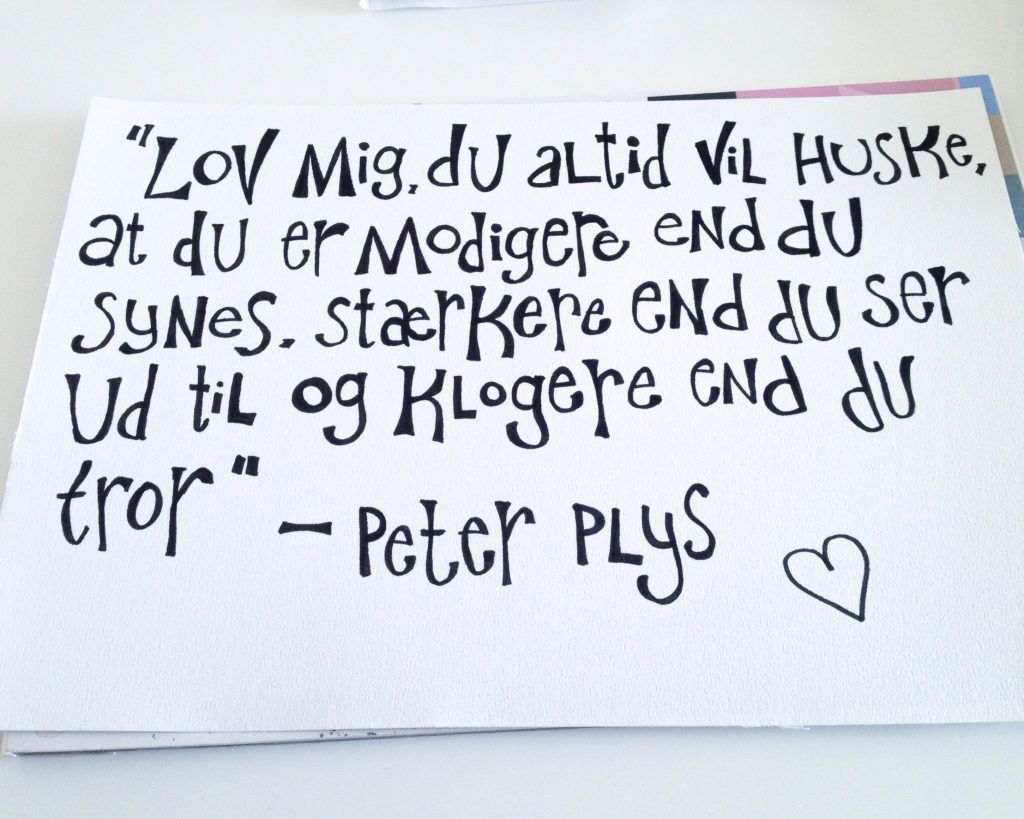 "Lov mig, du altid vil huske,
at du er modigere end du
synes, stærkere end du ser
ud til og klogere end du
tror"
- Peter Plys